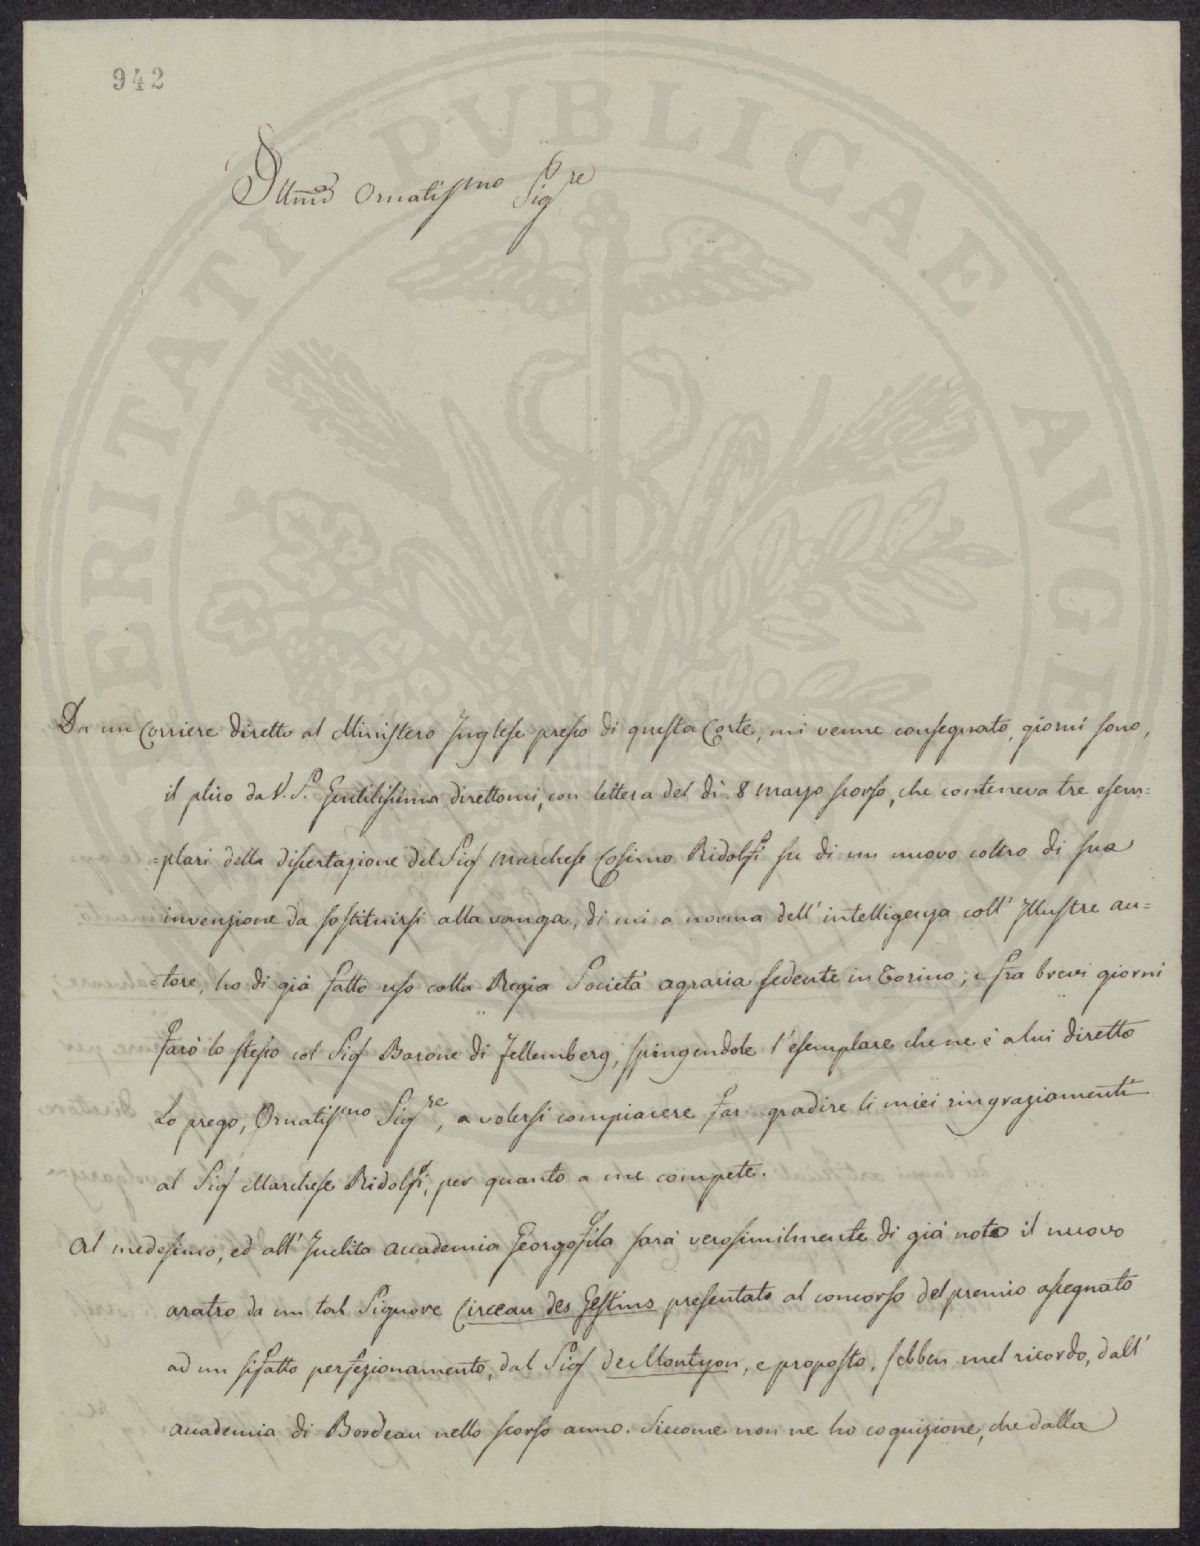 942
PVBLICAE
Illmo Ornatissmo Sigre
Da un Corriere diretto al Ministero Inglese presso di questa Corte, mi venne consegnato, giorni sono,
il plico da V. S. Gentilissima direttomi, con lettera del dì 8 marzo scorso, che conteneva tre esem=
=plari della dissertazione del Sigr Marchese Cosimo Ridolfi su di un nuovo coltro di sua
invenzione da sostituirsi alla vanga, di cui a norma dell'intelligenza coll'Illustre au=
=tore, ho di già fatto uso colla Regia Società agraria sedente in Torino; e fra brevi giorni
farò lo stesso col Sigr Barone di Fellemberg, spingendole l'esemplare che ne è a lui diretto
Lo prego, Ornatissmo Sigre, a volersi compiacere far gradire li miei ringraziamenti
al Sigr Marchese Ridolfi, per quanto a me compete.
Al medesimo, ed all'Inclita accademia Georgofila sarà verosimilmente di già noto il nuovo
aratro da un tal Signore des presentato al concorso del premio assegnato
ad un sifatto perfezionamento, dal Sigr de Montyon, e proposto, sebben mel ricordo, dall'
accademia di Bordeau nello scorso anno. Siccome non ne ho cognizione, che dalla